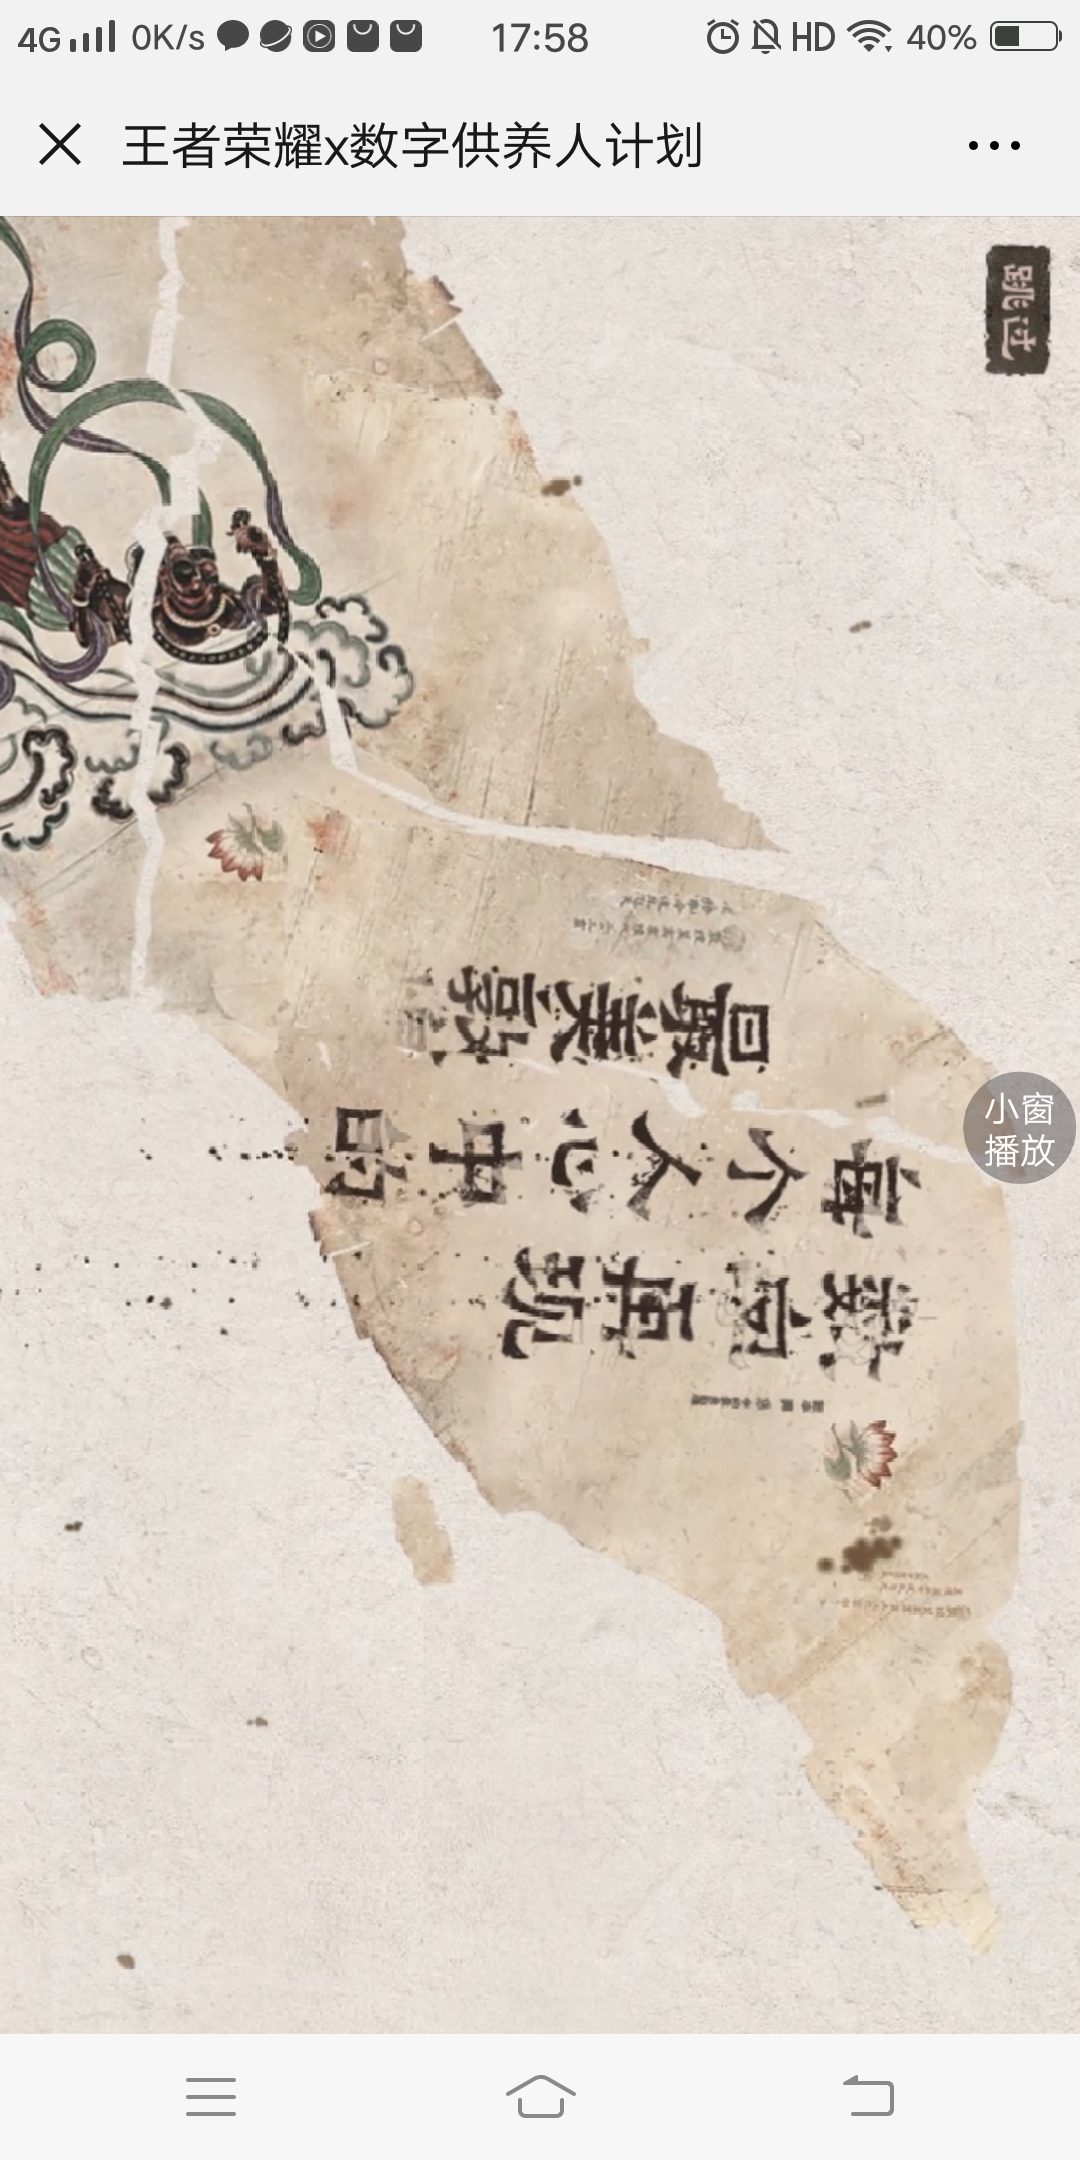 4G 0K/s 17:58 HD 40%
王者荣耀x数字供养人计划
跳过
数字再现
每个人心中的
最美敦
小窗
播放